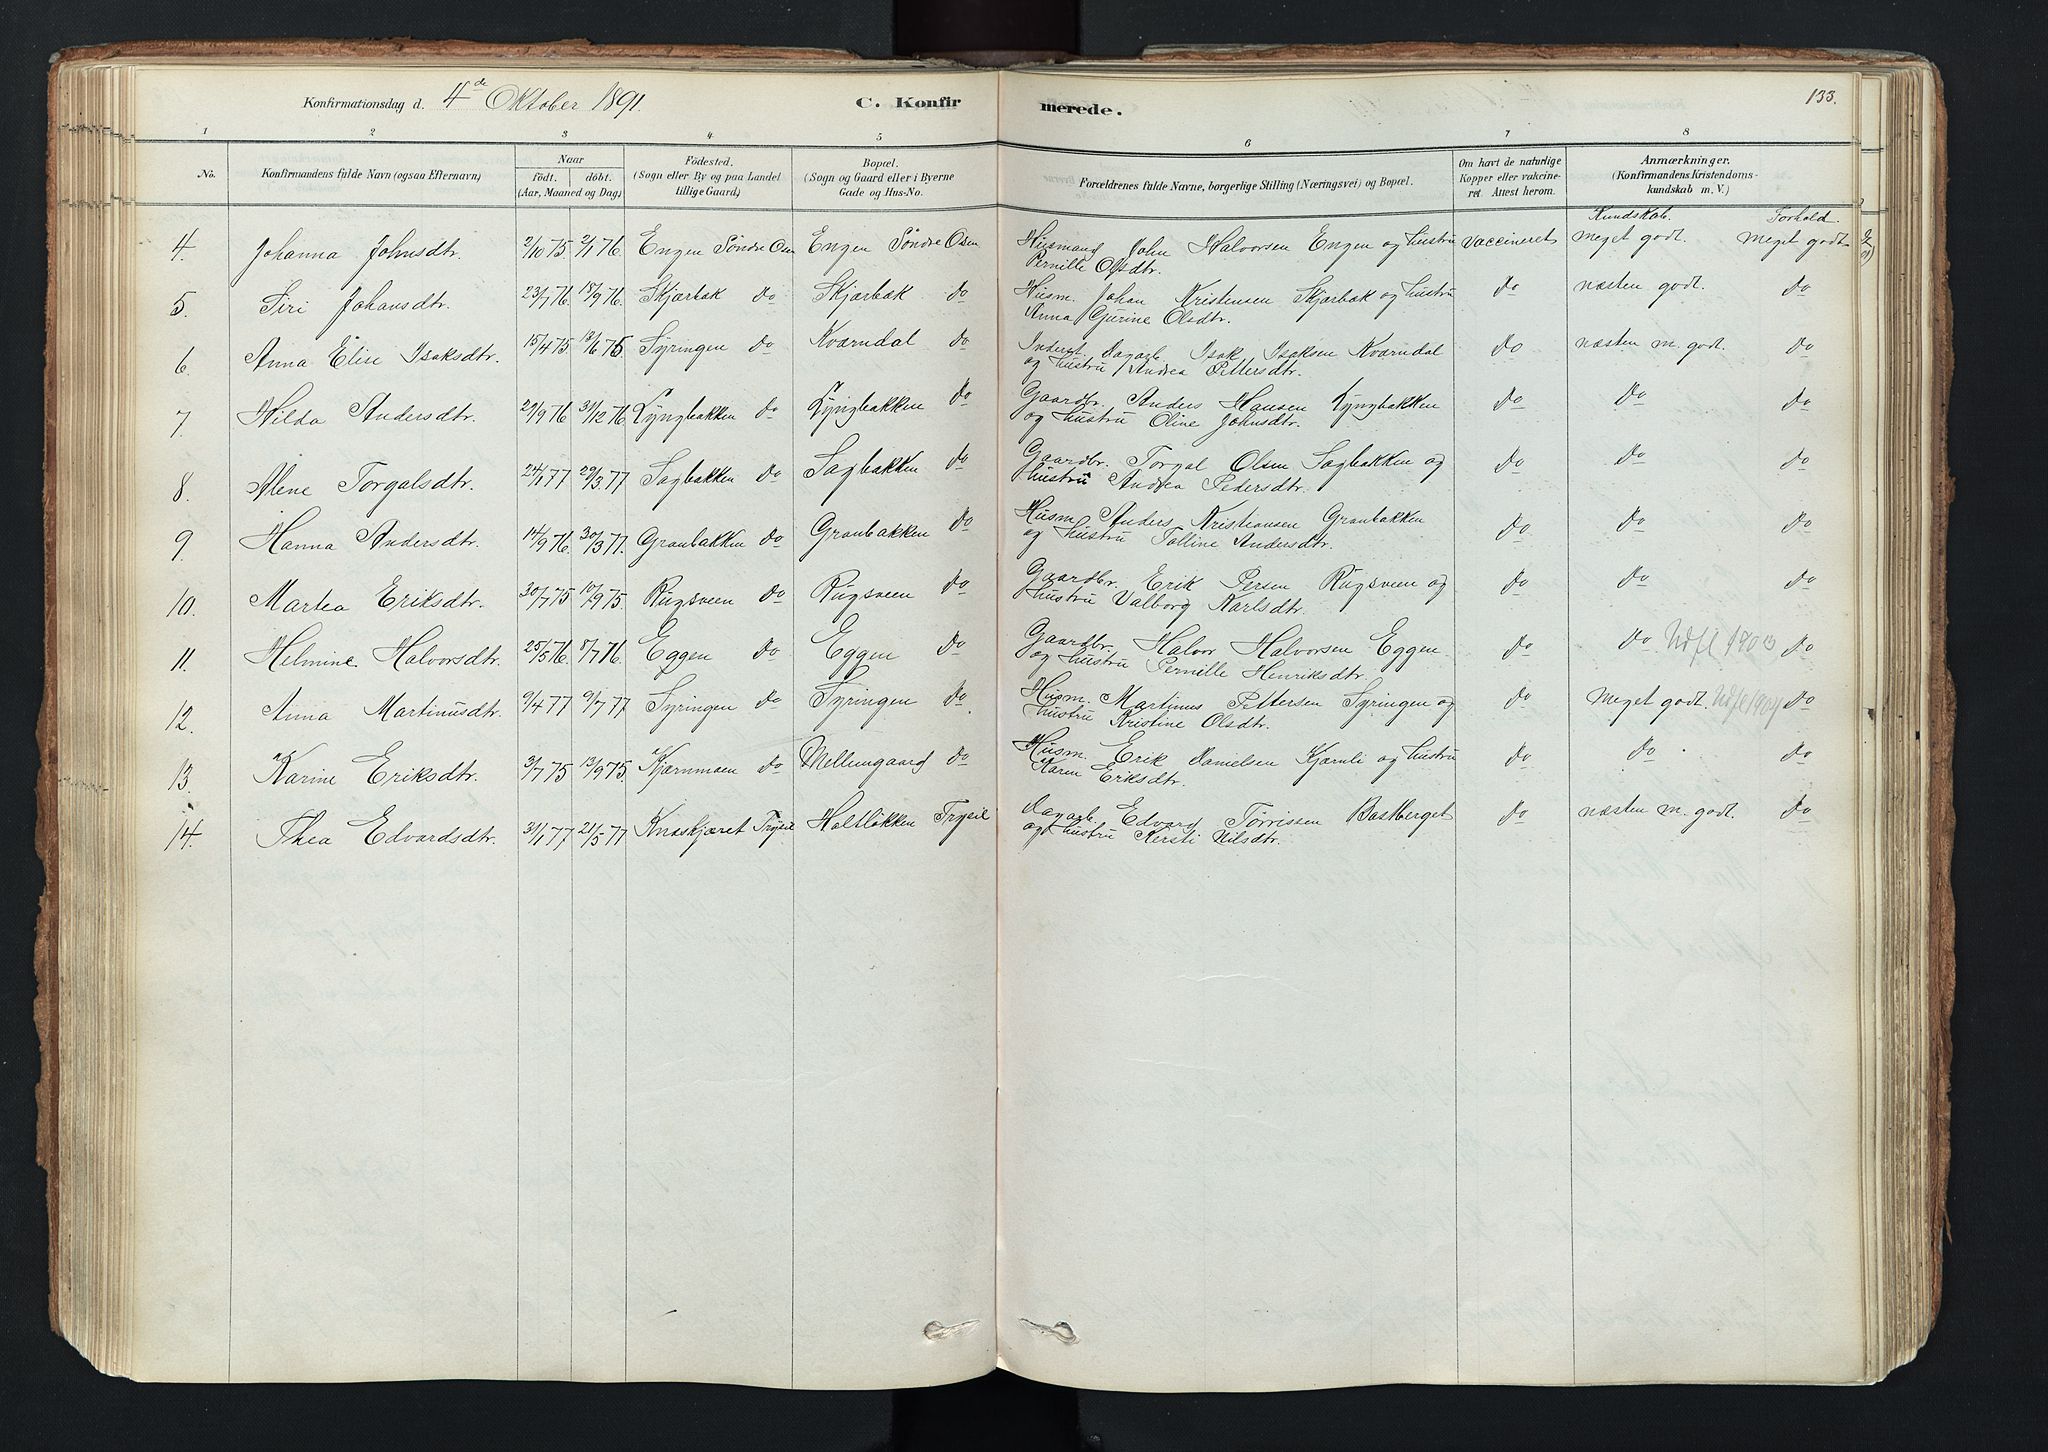 Konfirmationsdag d. 4de Oktober 1891.
C. Konfirmerede.
133.
1 2 3 4 5 6 7 8
No.
Konfirmandens fulde Navn (ogsaa Efternavn)
Naar
födt. döbt.
(Aar, Maaned og Dag)
Födested.
(Sogn eller By og paa Landet
tillige Gaard)
Bopæl.
(Sogn og Gaard eller i Byerne
Gade og Hus-No.
Forældrenes fulde Navne, borgerlige Stilling (Næringsvei) og Bopæl.
Om havt de naturlige
Kopper eller vakcine-
ret. Attest herom.
Anmærkninger.
(Konfirmandens Kristendoms-
kundskab m. V.)
Kundskab. Forhold.
4. Johanna Johnsdtr. 2/10 75 2/1 76 Engen Söndre Osen Engen Söndre Osen Husmand John Halvorsen Engen og hustru vaccineret meget godt. meget godt
Pernille Olsdtr.
5. Siri Johansdtr. 23/7 76. 18/9 76. Skjærbæk do Skjærbæk do Husm. Johan Kristensen Skjærbæk og hustru do næsten godt. do
Anna Gurine Olsdtr.
6. Anna Elise Isaksdtr. 15/4 75 13/6 75 Syringen do Kværndal do Inderst. Dagarb. Isak Isaksen Kværndal do næsten m. godt. do
og hustru Andrea Pettersdtr.
7. Hilda Andersdtr. 22/9 76 31/12 76. Lyngbakken do Lyngbakken do Gaardbr. Anders Hansen Lyngbakken do do do
og hustru Oline Johnsdtr.
8. Alene Torgalsdtr. 24/1 77 29/3 77 Sagbakken do Sagbakken do Gaardbr. Torgal Olsen Sagbakken og do do do
hustru Andrea Pedersdtr.
9. Hanna Andersdtr. 14/9 76. 30/3 77. Granbakken do Granbakken do Husm. Anders Kristiansen Granbakken do do do
og hustru Talline Andersdtr.
10. Martea Eriksdtr. 30/7 75 19/9 75. Rugsveen do Rugsveen do Gaardbr. Erik Persen Rugsveen og do do do
hustru Valborg Karlsdtr.
11. Helmine Halvorsdtr. 25/5 76. 8/7 76. Eggen do Eggen do Gaardbr. Halvor Halvorsen Eggen do do Udfl 1903 do
og hustru Pernille Henriksdtr.
12. Anna Martinusdtr. 9/4 77 9/7 77 Syringen do Syringen do Husm. Martinus Pettersen Syringen og do meget godt. Udfl 1904 do
hustru Kristine Olsdtr.
13. Karine Eriksdtr. 3/7 75 13/9 75. Kjernmoen do Mellemgaard do Husm. Erik Danielsen Kjernli og hustru do do do
Karen Eriksdtr.
14. Thea Edvardsdtr. 31/1 77 21/5 77 Knaskjæret Trysil Holtløkken Trysil Dagarb. Edvard Törrissen Bastberget do næsten m. godt. do
og hustru Kersti Nilsdtr.